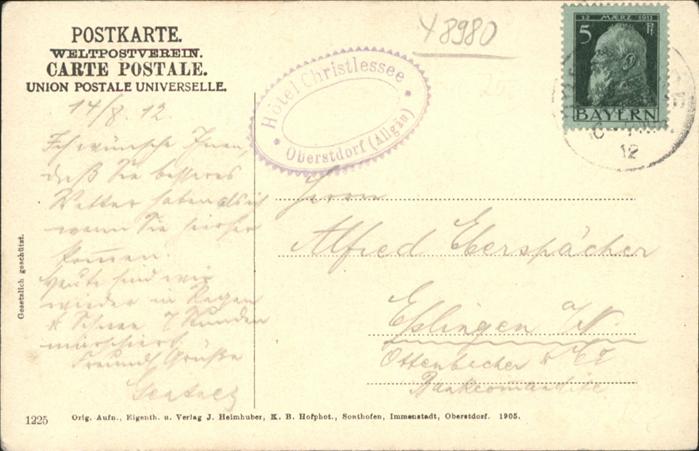 POSTKARTE.
WELTPOSTVEREIN.
CARTE POSTALE.
UNION POSTALE UNIVERSELLE.
48980
12 MÆRZ 1911
5 Pf
BAYERN
12
Hôtel Christlessee
Oberstdorf (Allgäu)
14/8. 12.
Ich wünsche Ihnen,
daß Sie besseres
Wetter haben als ich
wenn Sie hierher
kommen.
Heute sind wir
wieder in Regen
& Schnee 7 Stunden
marschiert
Freundl Grüße
Herrn
Alfred Eberspächer
Esslingen a/N.
Ottenbacher & Co
Bankcomandite
Gesetzlich geschützt.
1225
Orig. Aufn., Eigenth. u. Verlag J. Heimhuber, K. B. Hofphot., Sonthofen, Immenstadt, Oberstdorf. 1905.